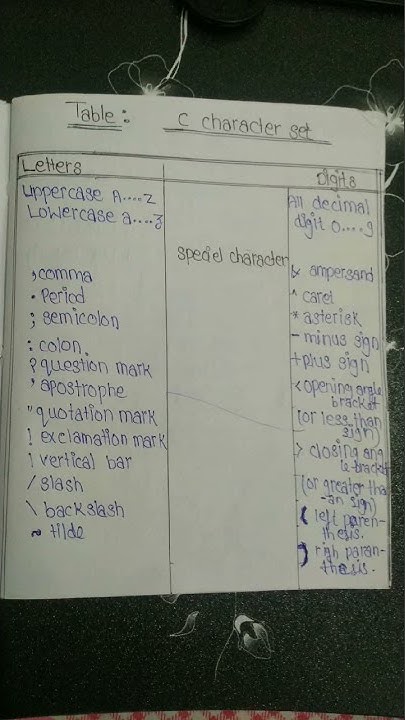 Table: C character set
Letters
Digits
Uppercase A....Z
Lowercase a....z
All decimal
digit 0....9
speciel character
, comma
. Period
; semicolon
: colon.
? question mark
' apostrophe
" quotation mark
! exclamation mark
| vertical bar
/ slash
\ backslash
~ tilde
& ampersand
^ caret
* asterisk
- minus sign
+ plus sign
< opening angle
bracket
(or less than
sign)
> closing ang
le bracket
(or greater tha
-an sign)
( left paren-
thesis.
) righ paran-
thesis.